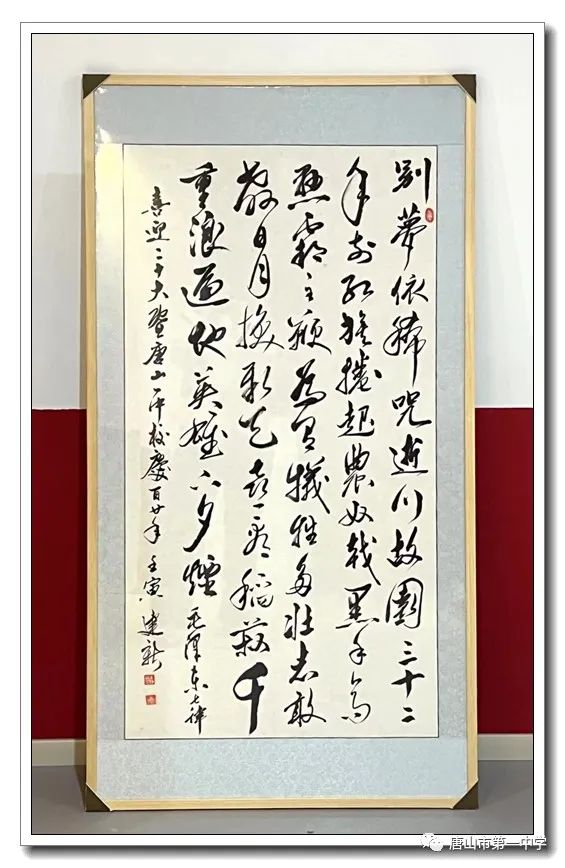 别梦依稀咒逝川故園三十二
年前红旗捲起農奴戟黑手高
悬霸主鞭为有犧牲多壮志敢
教日月换新天喜看稻菽千
重浪遍地英雄下夕煙 毛澤东七律
喜迎二十大暨唐山一中校慶百廿年 壬寅 建新
唐山市第一中学